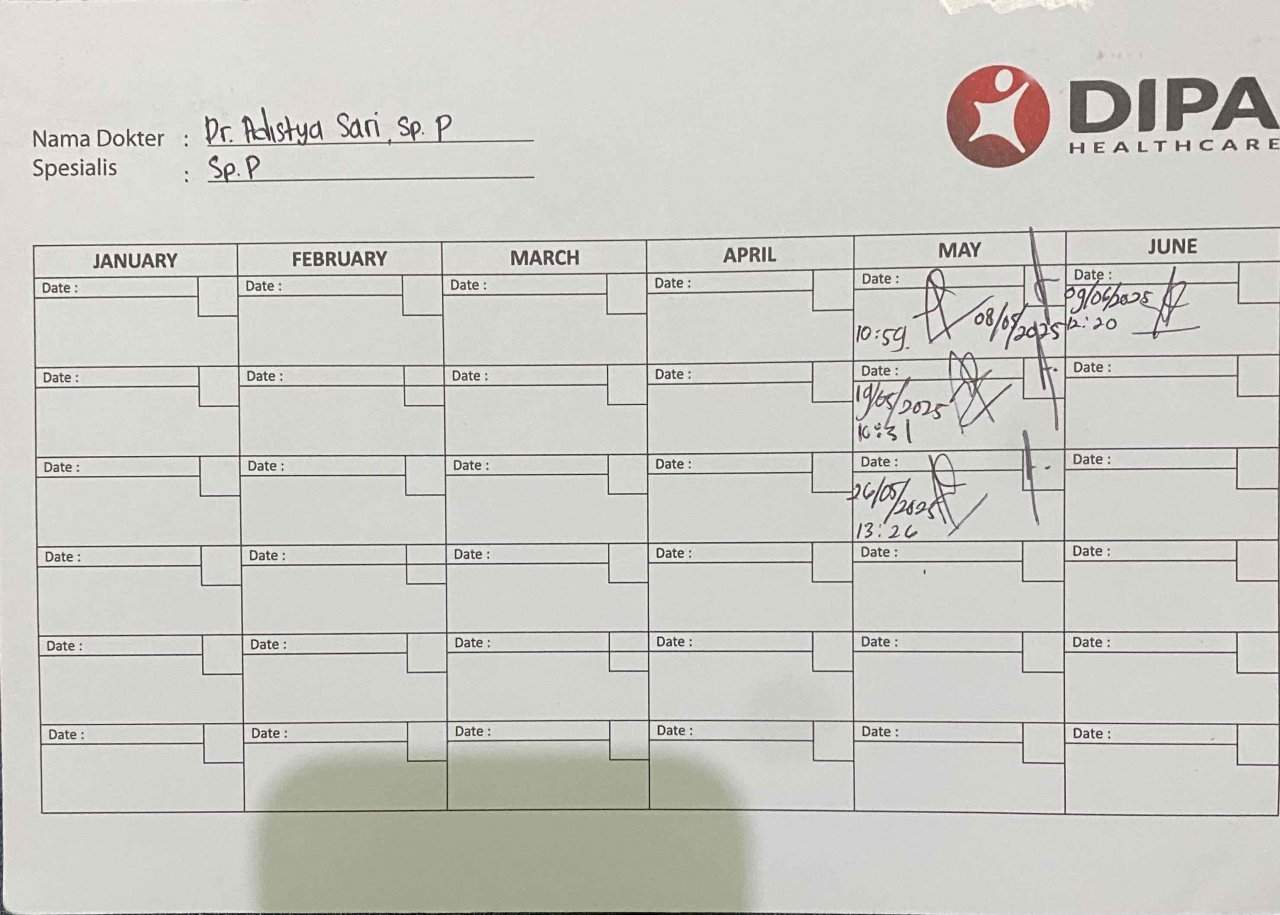 DIPA
HEALTHCARE
Nama Dokter : Dr. Adistya Sari, Sp. P
Spesialis : Sp. P
JANUARY FEBRUARY MARCH APRIL MAY JUNE
Date : Date : Date : Date : Date : Date :
10:59. 08/05/2025 09/06/2025
12:20
Date : Date : Date : Date : Date : Date :
19/05/2025
10:31
Date : Date : Date : Date : Date : Date :
26/05/2025
13:26
Date : Date : Date : Date : Date : Date :
Date : Date : Date : Date : Date : Date :
Date : Date : Date : Date : Date : Date :